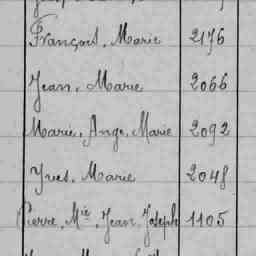 François, Marie 2176
Jean, Marie 2066
Marie, Ange, Marie 2092
Yves, Marie 2048
Pierre, Mie, Jean, Joseph 1105